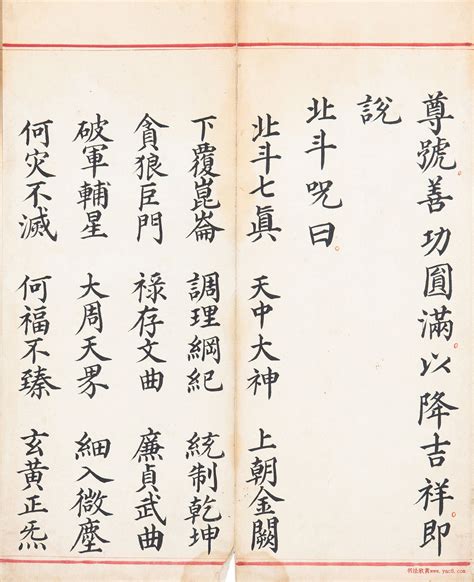 尊號善功圓滿以降吉祥即
説
北斗呪曰
北斗七真 天中大神 上朝金闕
下覆崑崙 調理綱紀 統制乾坤
貪狼巨門 祿存文曲 廉貞武曲
破軍輔星 大周天界 細入微塵
何灾不滅 何福不臻 玄黄正炁
书法欣赏www.yac8.com